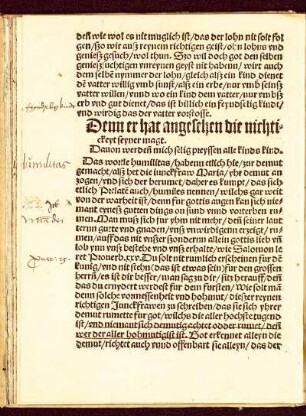 denn wie wol es nit muglich ist/ das der lohn nit solt fol
gen/ szo wir ausz reynem richtigen geist/ on lohns vnd
geniesz gesuch/ wol thun. Szo wil doch got den selben
geniesz suchtigen vnreynen geyst nit habenn/ wirt auch
dem selbē nymmer der lohn/ gleich alsz ein kind dienet
dē vatter willig vmb sunst/ alsz ein erbe/ nur vmb seinsz
vatter willen/ vnd wo ein kind dem vatter/ nur vmbsz
erb vnd gut dienet/ das ist billich ein feyndselig kindt/
vnd wirdig das der vatter vorstosse.
Denn er hat angesehen die nichti-
ckeyt seyner magt.
Dauon werden mich selig preyssen alle kinds kind.
humilitas
Das wortle humilitas/ haben etlich hie/ zur demut
gemacht/ alsz het die iunckfraw Maria/ yhr demut an
zogen/ vnd sich der berumet/ daher es kumpt/ das sich
etlich Prelatē auch/ humiles nennen/ wilchs gar weit
von der warheit ist/ denn fur gottis augen kan sich nie-
mant eynesz guten dings on sund vnd vorterbenn ru
men. Man musz sich fur yhm nit mehr/ den seiner laut
terun gutte vnd gnaden/ vnsz vnwirdigenn erzeigt/ ru
men/ auff das nit vnszer szonderun allein gottis lieb vñ
lob ynn vnsz bestehe vnd vnsz erhalte/ wie Salomon le
ret Prouerb.xxv. Du solt nit rumlich erscheinen fur dē
kunig/ vnd nit stehn/ das ist etwas sein/ fur den grossen
herrn/ es ist dir besser/ man sag zu dir/ sitz herauff/ denn
das du ernydert werdest fur dem fursten/ Wie solt mā
denn solche vormessenheit vnd hohmut/ disszer reynen
richtigen Junckfrawen zu schreiben/ das sie sich yhrer
demut rumette fur got/ wilchs die aller hochste tugend
ist/ vnd niemant sich demutig achtet odder rumet/ denn
wer der aller hohmutigist ist. Got erkennet alleyn die
demut/ richtet auch vnnd offenbart sie alleyn/ das der